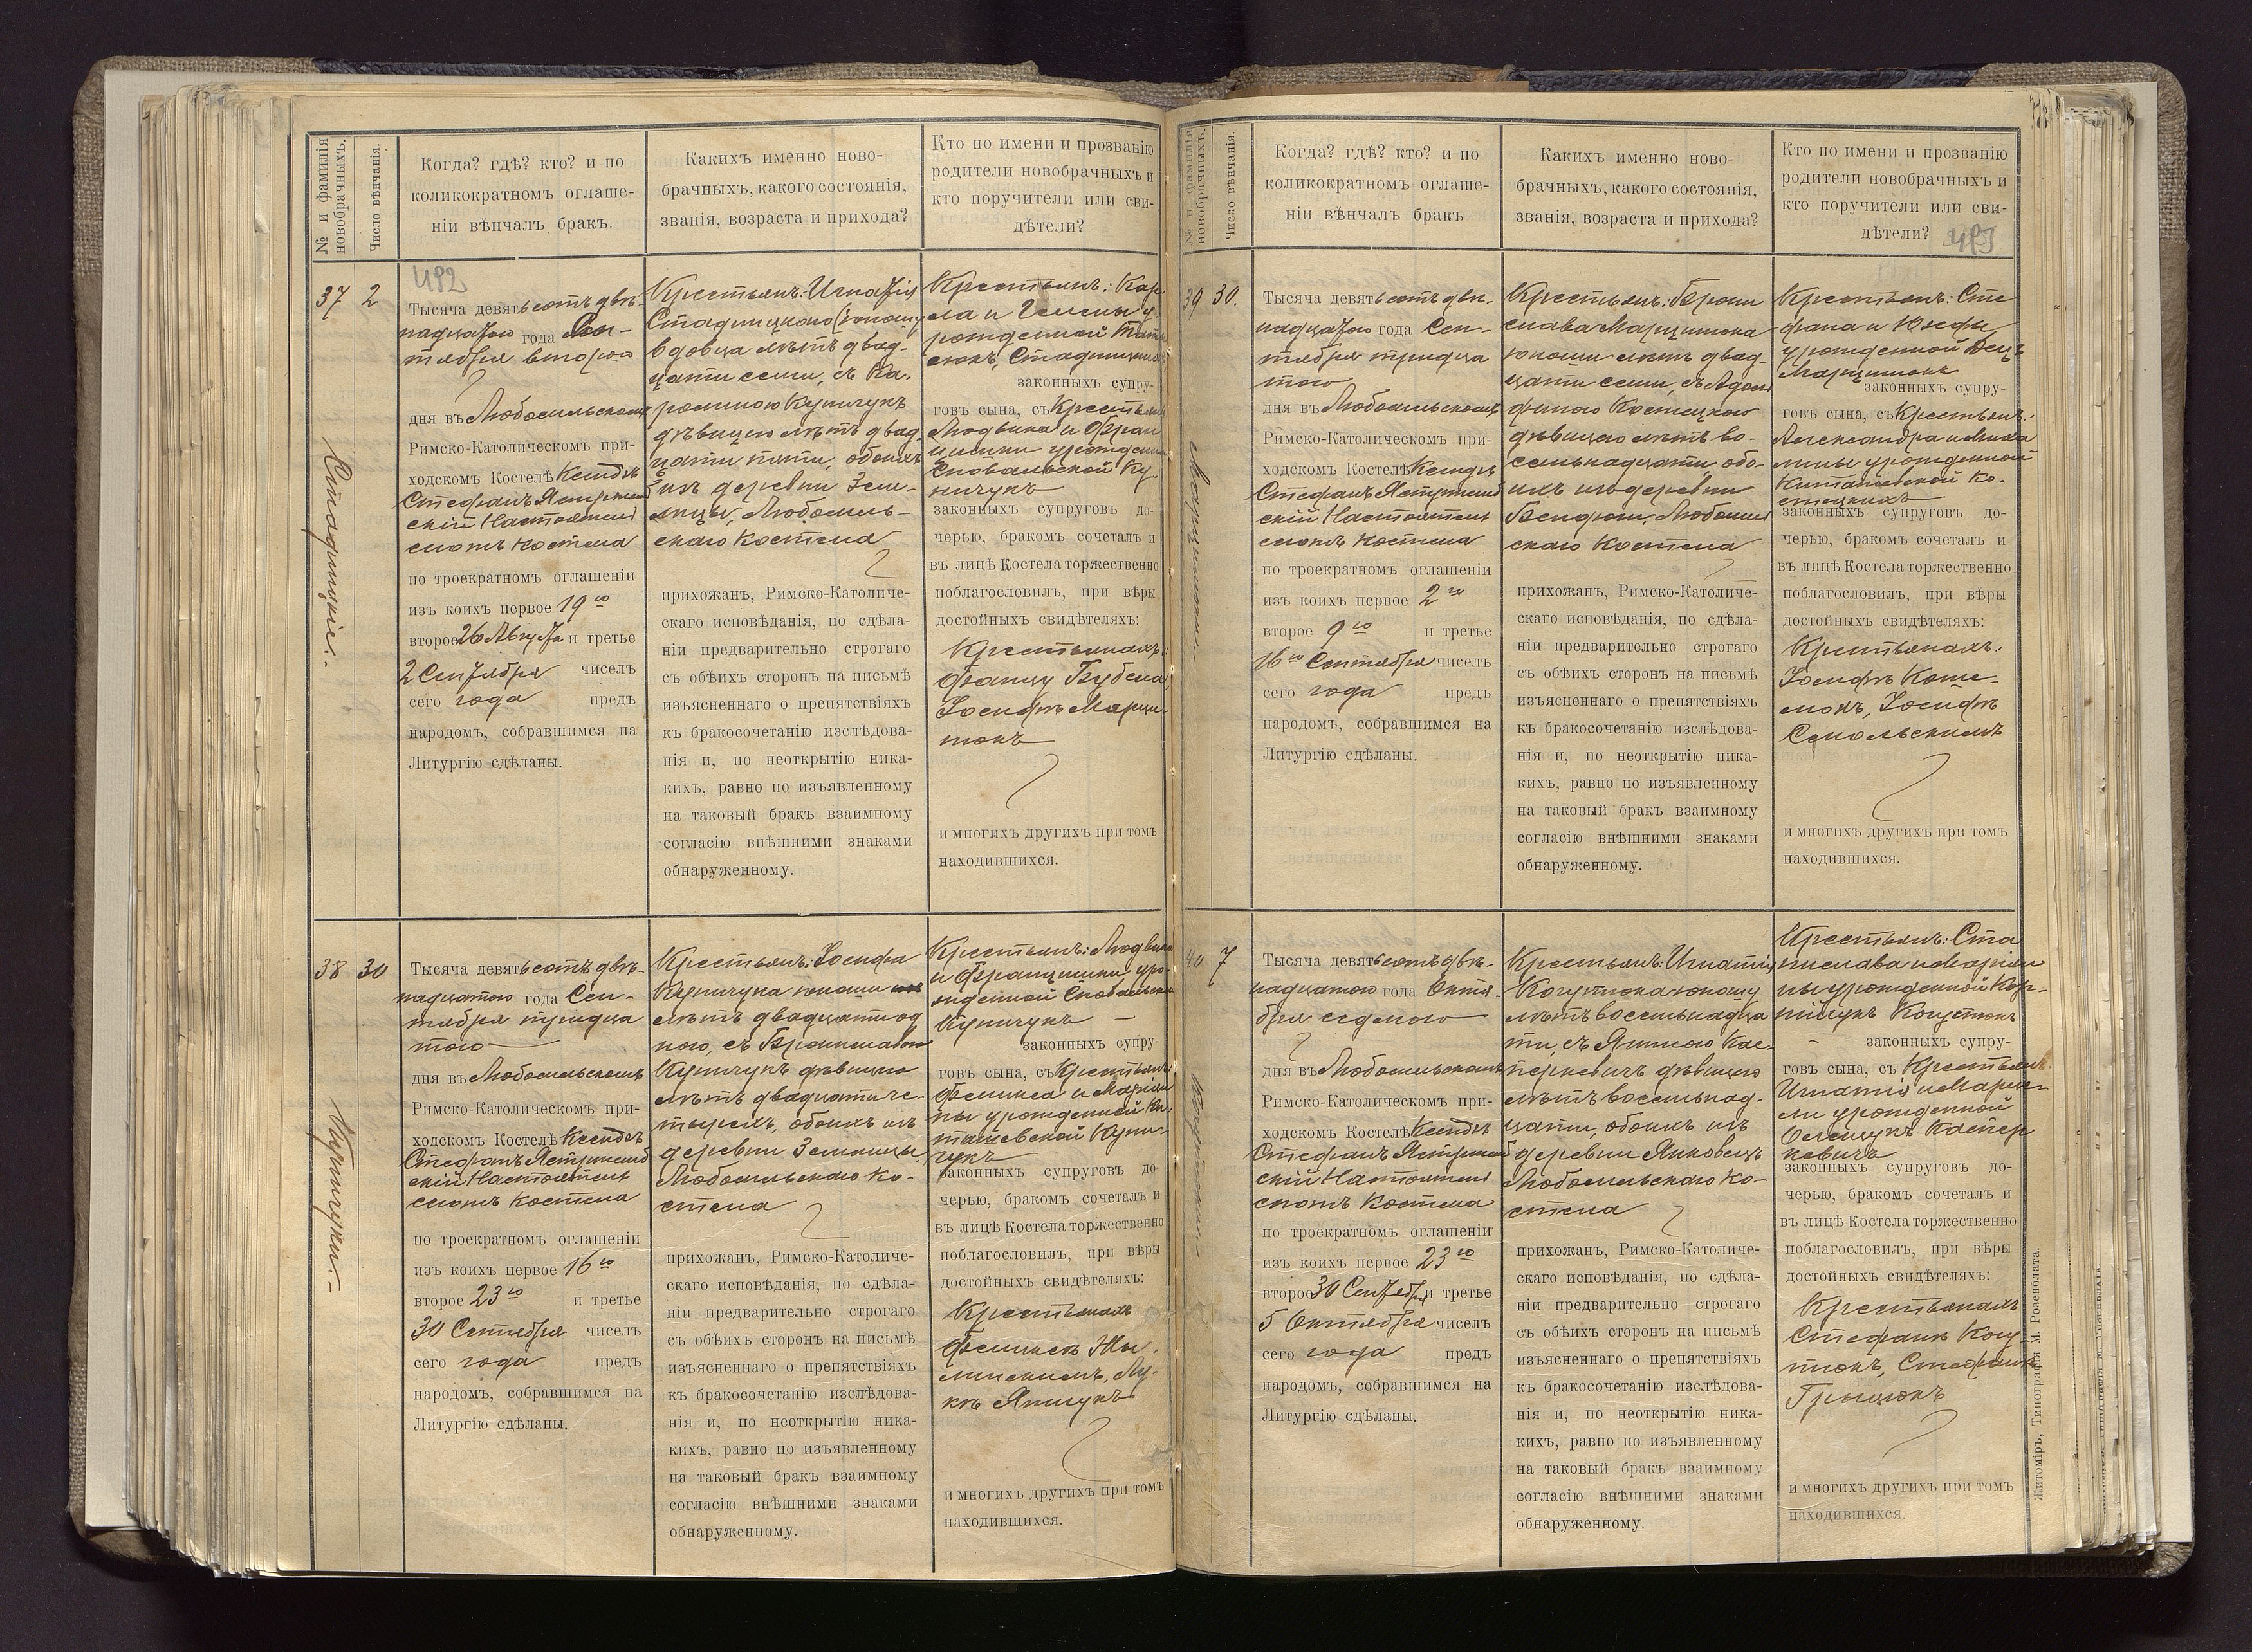 № и фамилія новобрачныхъ.
Число вѣнчанія.
Когда? гдѣ? кто? и по
коликократномъ оглаше-
ніи вѣнчалъ бракъ.
Какихъ именно ново-
брачныхъ, какого состоянія,
званія, возраста и прихода?
Кто по имени и прозванію
родители новобрачныхъ и
кто поручители или сви-
дѣтели?
37
2
Стадницкіе.-
Тысяча девятьсотъ двѣ-
надцатого года Сен-
тября второго
дня въ Любомльскомъ
Римско-Католическомъ при-
ходскомъ Костелѣ Ксендзъ
Стефанъ Ястржемб
скій Настоятель
сногъ Костела
по троекратномъ оглашеніи
изъ коихъ первое 19го
второе 26 Августа и третье
2 Сентября чиселъ
сего года предъ
народомъ, собравшимся на
Литургію сдѣланы.
Крестьянъ: Игнатія
Стадницкого (юношу
вдовца лѣтъ двад-
цати семи, съ Ка-
ролиною Куничукъ
дѣвицею лѣтъ двад
цати пяти, обоихъ
изъ деревни Зем-
лицы, Любомль-
скаго Костела
прихожанъ, Римско-Католиче-
скаго исповѣданія, по сдѣла-
ніи предварительно строгаго
съ обѣихъ сторонъ на письмѣ
изъясненнаго о препятствіяхъ
къ бракосочетанію изслѣдова-
нія и, по неоткрытію ника-
кихъ, равно по изъявленному
на таковый бракъ взаимному
согласію внѣшними знаками
обнаруженному.
Крестьянъ: Кар
ла и Гелены у-
рожденной
Стадницкихъ
законныхъ супру-
говъ сына, съ Крестьянъ
Людвика и Фран
цишки урожденной
Сповальской Ку
ничукъ
законныхъ супруговъ до-
черью, бракомъ сочеталъ и
въ лицѣ Костела торжественно
поблагословилъ, при вѣры
достойныхъ свидѣтеляхъ:
Крестьянахъ:
Францу Бубела,
Іосифъ Марци-
нюкъ
и многихъ другихъ при томъ
находившихся.
38
30
Куничуки.-
Тысяча девятьсотъ двѣ-
надцатого года Сен-
тября тридца
того
дня въ Любомльскомъ
Римско-Католическомъ при-
ходскомъ Костелѣ Ксендзъ
Стефанъ Ястржемб
скій Настоятель
сногъ Костела
по троекратномъ оглашеніи
изъ коихъ первое 16го
второе 23го и третье
30 Сентября чиселъ
сего года предъ
народомъ, собравшимся на
Литургію сдѣланы.
Крестьянъ: Іосифа
Куничука юношу
лѣтъ двадцати од
ного, съ Брониславою
Куничукъ дѣвицею
лѣтъ двадцати че-
тырехъ, обоихъ изъ
деревни Землицы
Любомльскаго Ко-
стела
прихожанъ, Римско-Католиче-
скаго исповѣданія, по сдѣла-
ніи предварительно строгаго
съ обѣихъ сторонъ на письмѣ
изъясненнаго о препятствіяхъ
къ бракосочетанію изслѣдова-
нія и, по неоткрытію ника-
кихъ, равно по изъявленному
на таковый бракъ взаимному
согласію внѣшними знаками
обнаруженному.
Крестьянъ: Людвика
и Францишки уро-
жденной Сповальской
Куничукъ
законныхъ супру-
говъ сына, съ Крестьянъ
Феликса и Маріан
ны урожденной Ки
ташевской Куни-
чукъ
законныхъ супруговъ до-
черью, бракомъ сочеталъ и
въ лицѣ Костела торжественно
поблагословилъ, при вѣры
достойныхъ свидѣтеляхъ:
Крестьянахъ
Феликсъ
Лу-
къ Янчукъ
и многихъ другихъ при томъ
находившихся.
№ и фамилія новобрачныхъ.
Число вѣнчанія.
Когда? гдѣ? кто? и по
коликократномъ оглаше-
ніи вѣнчалъ бракъ
Какихъ именно ново-
брачныхъ, какого состоянія,
званія, возраста и прихода?
Кто по имени и прозванію
родители новобрачныхъ и
кто поручители или сви-
дѣтели?
39
30.
Марцинюки.-
Тысяча девятьсотъ двѣ-
надцатого года Сен-
тября тридца
того
дня въ Любомльскомъ
Римско-Католическомъ при-
ходскомъ Костелѣ Ксендзъ
Стефанъ Ястржемб
скій Настоятель
сногъ Костела
по троекратномъ оглашеніи
изъ коихъ первое 2го
второе 9го и третье
16го Сентября чиселъ
сего года предъ
народомъ, собравшимся на
Литургію сдѣланы.
Крестьянъ: Брони
слава Марцинюка
юношу лѣтъ двад-
цати семи, съ Адоль
финою Костецкою
дѣвицею лѣтъ во-
семьнадцати обо-
ихъ изъ деревни
Бендюги, Любомль
скаго Костела
прихожанъ, Римско-Католиче-
скаго исповѣданія, по сдѣла-
ніи предварительно строгаго
съ обѣихъ сторонъ на письмѣ
изъясненнаго о препятствіяхъ
къ бракосочетанію изслѣдова-
нія и, по неоткрытію ника-
кихъ, равно по изъявленному
на таковый бракъ взаимному
согласію внѣшними знаками
обнаруженному.
Крестьянъ: Сте
фана и Юзефы
урожденной Децъ
Марцинюкъ
законныхъ супру-
говъ сына, съ Крестьянъ:
Александра и Миха
лины урожденной
Киташевской Ко-
стецкихъ
законныхъ супруговъ до-
черью, бракомъ сочеталъ и
въ лицѣ Костела торжественно
поблагословилъ, при вѣры
достойныхъ свидѣтеляхъ:
Крестьянахъ:
Іосифъ Коше-
люкъ, Іосифъ
Смольскимъ
и многихъ другихъ при томъ
находившихся.
40
7
Когутюки.-
Тысяча девятьсотъ двѣ-
надцатого года Октя-
бря седмого
дня въ Любомльскомъ
Римско-Католическомъ при-
ходскомъ Костелѣ Ксендзъ
Стефанъ Ястржемб
скій Настоятель
сногъ Костела
по троекратномъ оглашеніи
изъ коихъ первое 23го
второе 30 Сентября и третье
5 Октября чиселъ
сего года предъ
народомъ, собравшимся на
Литургію сдѣланы.
Крестьянъ: Игнатія
Когутюка юношу
лѣтъ восемьнадца
ти, съ Яниною Кас-
перкевичъ дѣвицею
лѣтъ восемьнад-
цати, обоихъ изъ
деревни Янковецъ
Любомльскаго Ко-
стела
прихожанъ, Римско-Католиче-
скаго исповѣданія, по сдѣла-
ніи предварительно строгаго
съ обѣихъ сторонъ на письмѣ
изъясненнаго о препятствіяхъ
къ бракосочетанію изслѣдова-
нія и, по неоткрытію ника-
кихъ, равно по изъявленному
на таковый бракъ взаимному
согласію внѣшними знаками
обнаруженному.
Крестьянъ: Ста
нислава и Маріан
ны урожденной Кор-
нійчукъ Когутюкъ
законныхъ супру-
говъ сына, съ Крестьянъ
Игнатія и Марце-
ли урожденной
Олещукъ Каспер
кевичъ
законныхъ супруговъ до-
черью, бракомъ сочеталъ и
въ лицѣ Костела торжественно
поблагословилъ, при вѣры
достойныхъ свидѣтеляхъ:
Крестьянахъ
Стефанъ Когу-
тюкъ, Стефанъ
Грыцюкъ
и многихъ другихъ при томъ
находившихся.
Житоміръ, Типографія М. Розенблата.